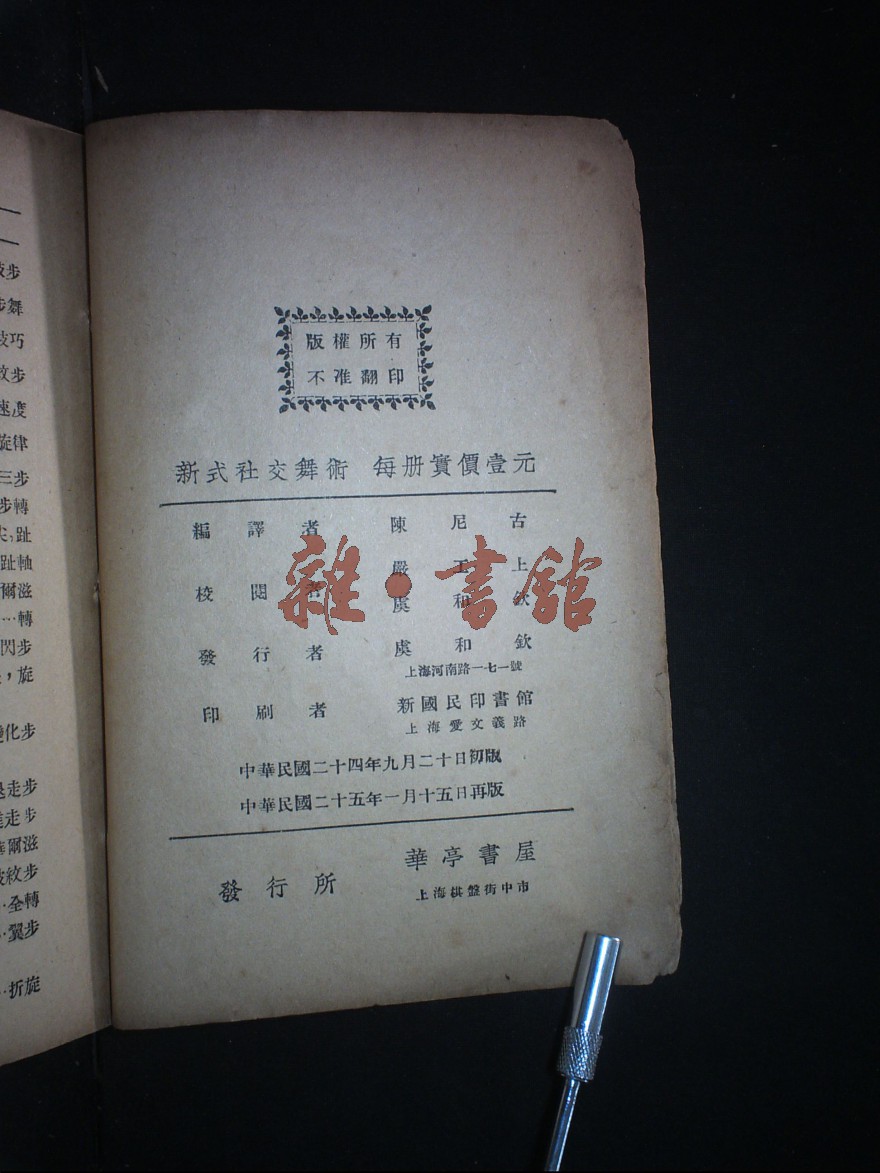 版權所有
不准翻印
新式社交舞術 每册實價壹元
編譯者 陳尼古
校閱者 嚴工上
虞和欽
發行者 虞和欽
上海河南路一七一號
印刷者 新國民印書館
上海愛文義路
中華民國二十四年九月二十日初版
中華民國二十五年一月十五日再版
發行所 華亭書屋
上海棋盤街中市
雜·書館
步
步舞
技巧
紋步
速度
旋律
三步
步轉
尖,趾
趾軸
爾滋
…轉
閃步
,旋
變化步
退走步
進走步
華爾滋
波紋步
…全轉
…翼步
…折旋